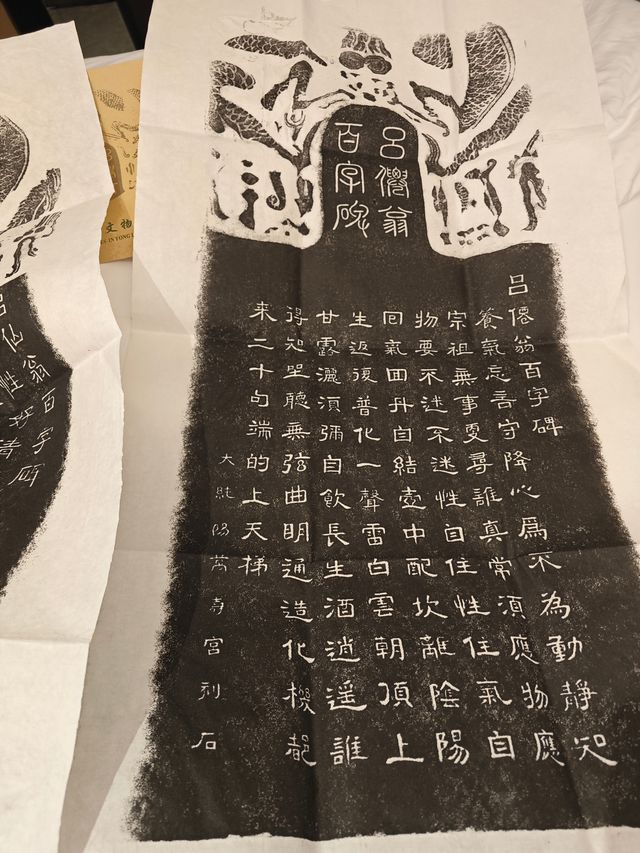 呂僊翁
百字碑
呂僊翁百字碑
養氣忘言守降心爲不為動靜知
宗祖無事更尋誰真常須應物應
物要不迷不迷性自住性住氣自
回氣回丹自結壺中配坎離陰陽
生返復普化一聲雷白雲朝頂上
甘露灑須彌自飲長生酒逍遙誰
得知坐聽無弦曲明通造化機都
來二十句端的上天梯
大純陽萬壽宮刻石
呂仙翁百字碑
文物